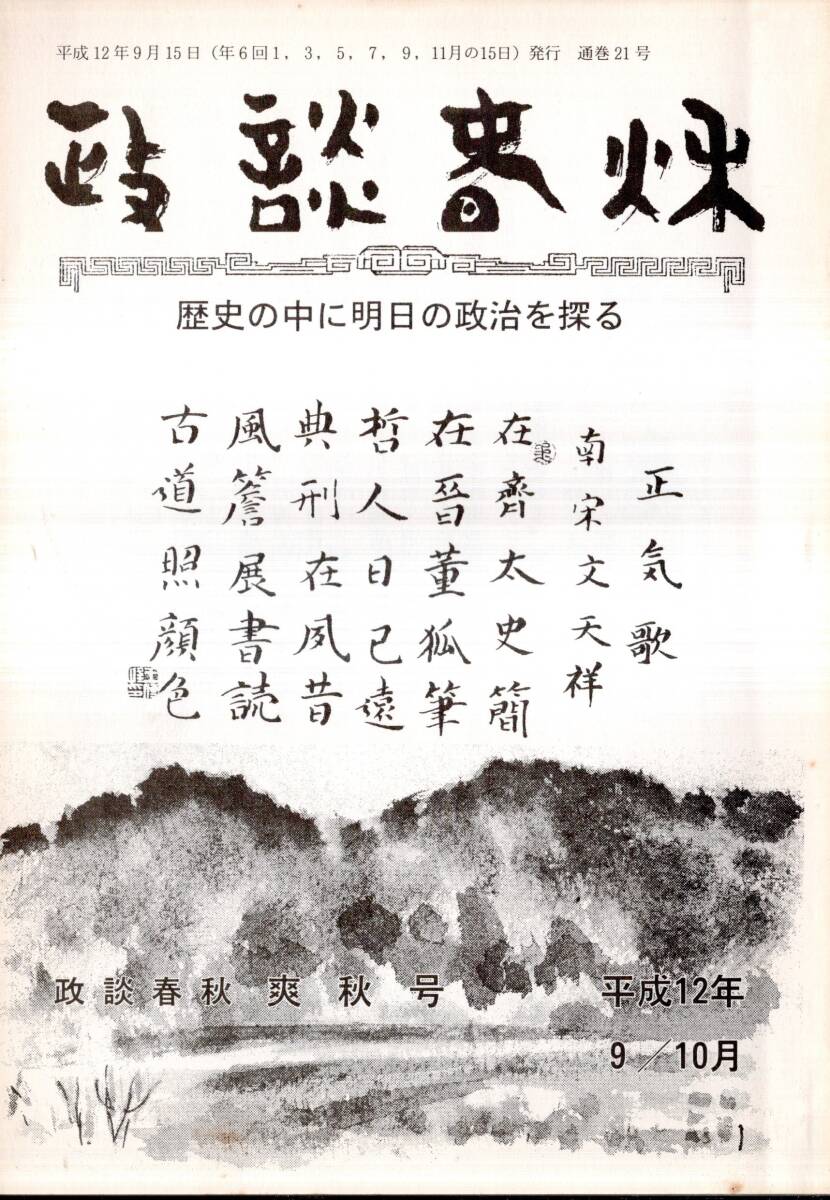 平成12年9月15日（年6回1，3，5，7，9，11月の15日）発行　通巻21号
政談春秌
歴史の中に明日の政治を探る
正気歌
南宋文天祥
在齊太史簡
在晉董狐筆
哲人日已遠
典刑在夙昔
風簷展書読
古道照顔色
政談春秋 爽秋号
平成12年
9／10月